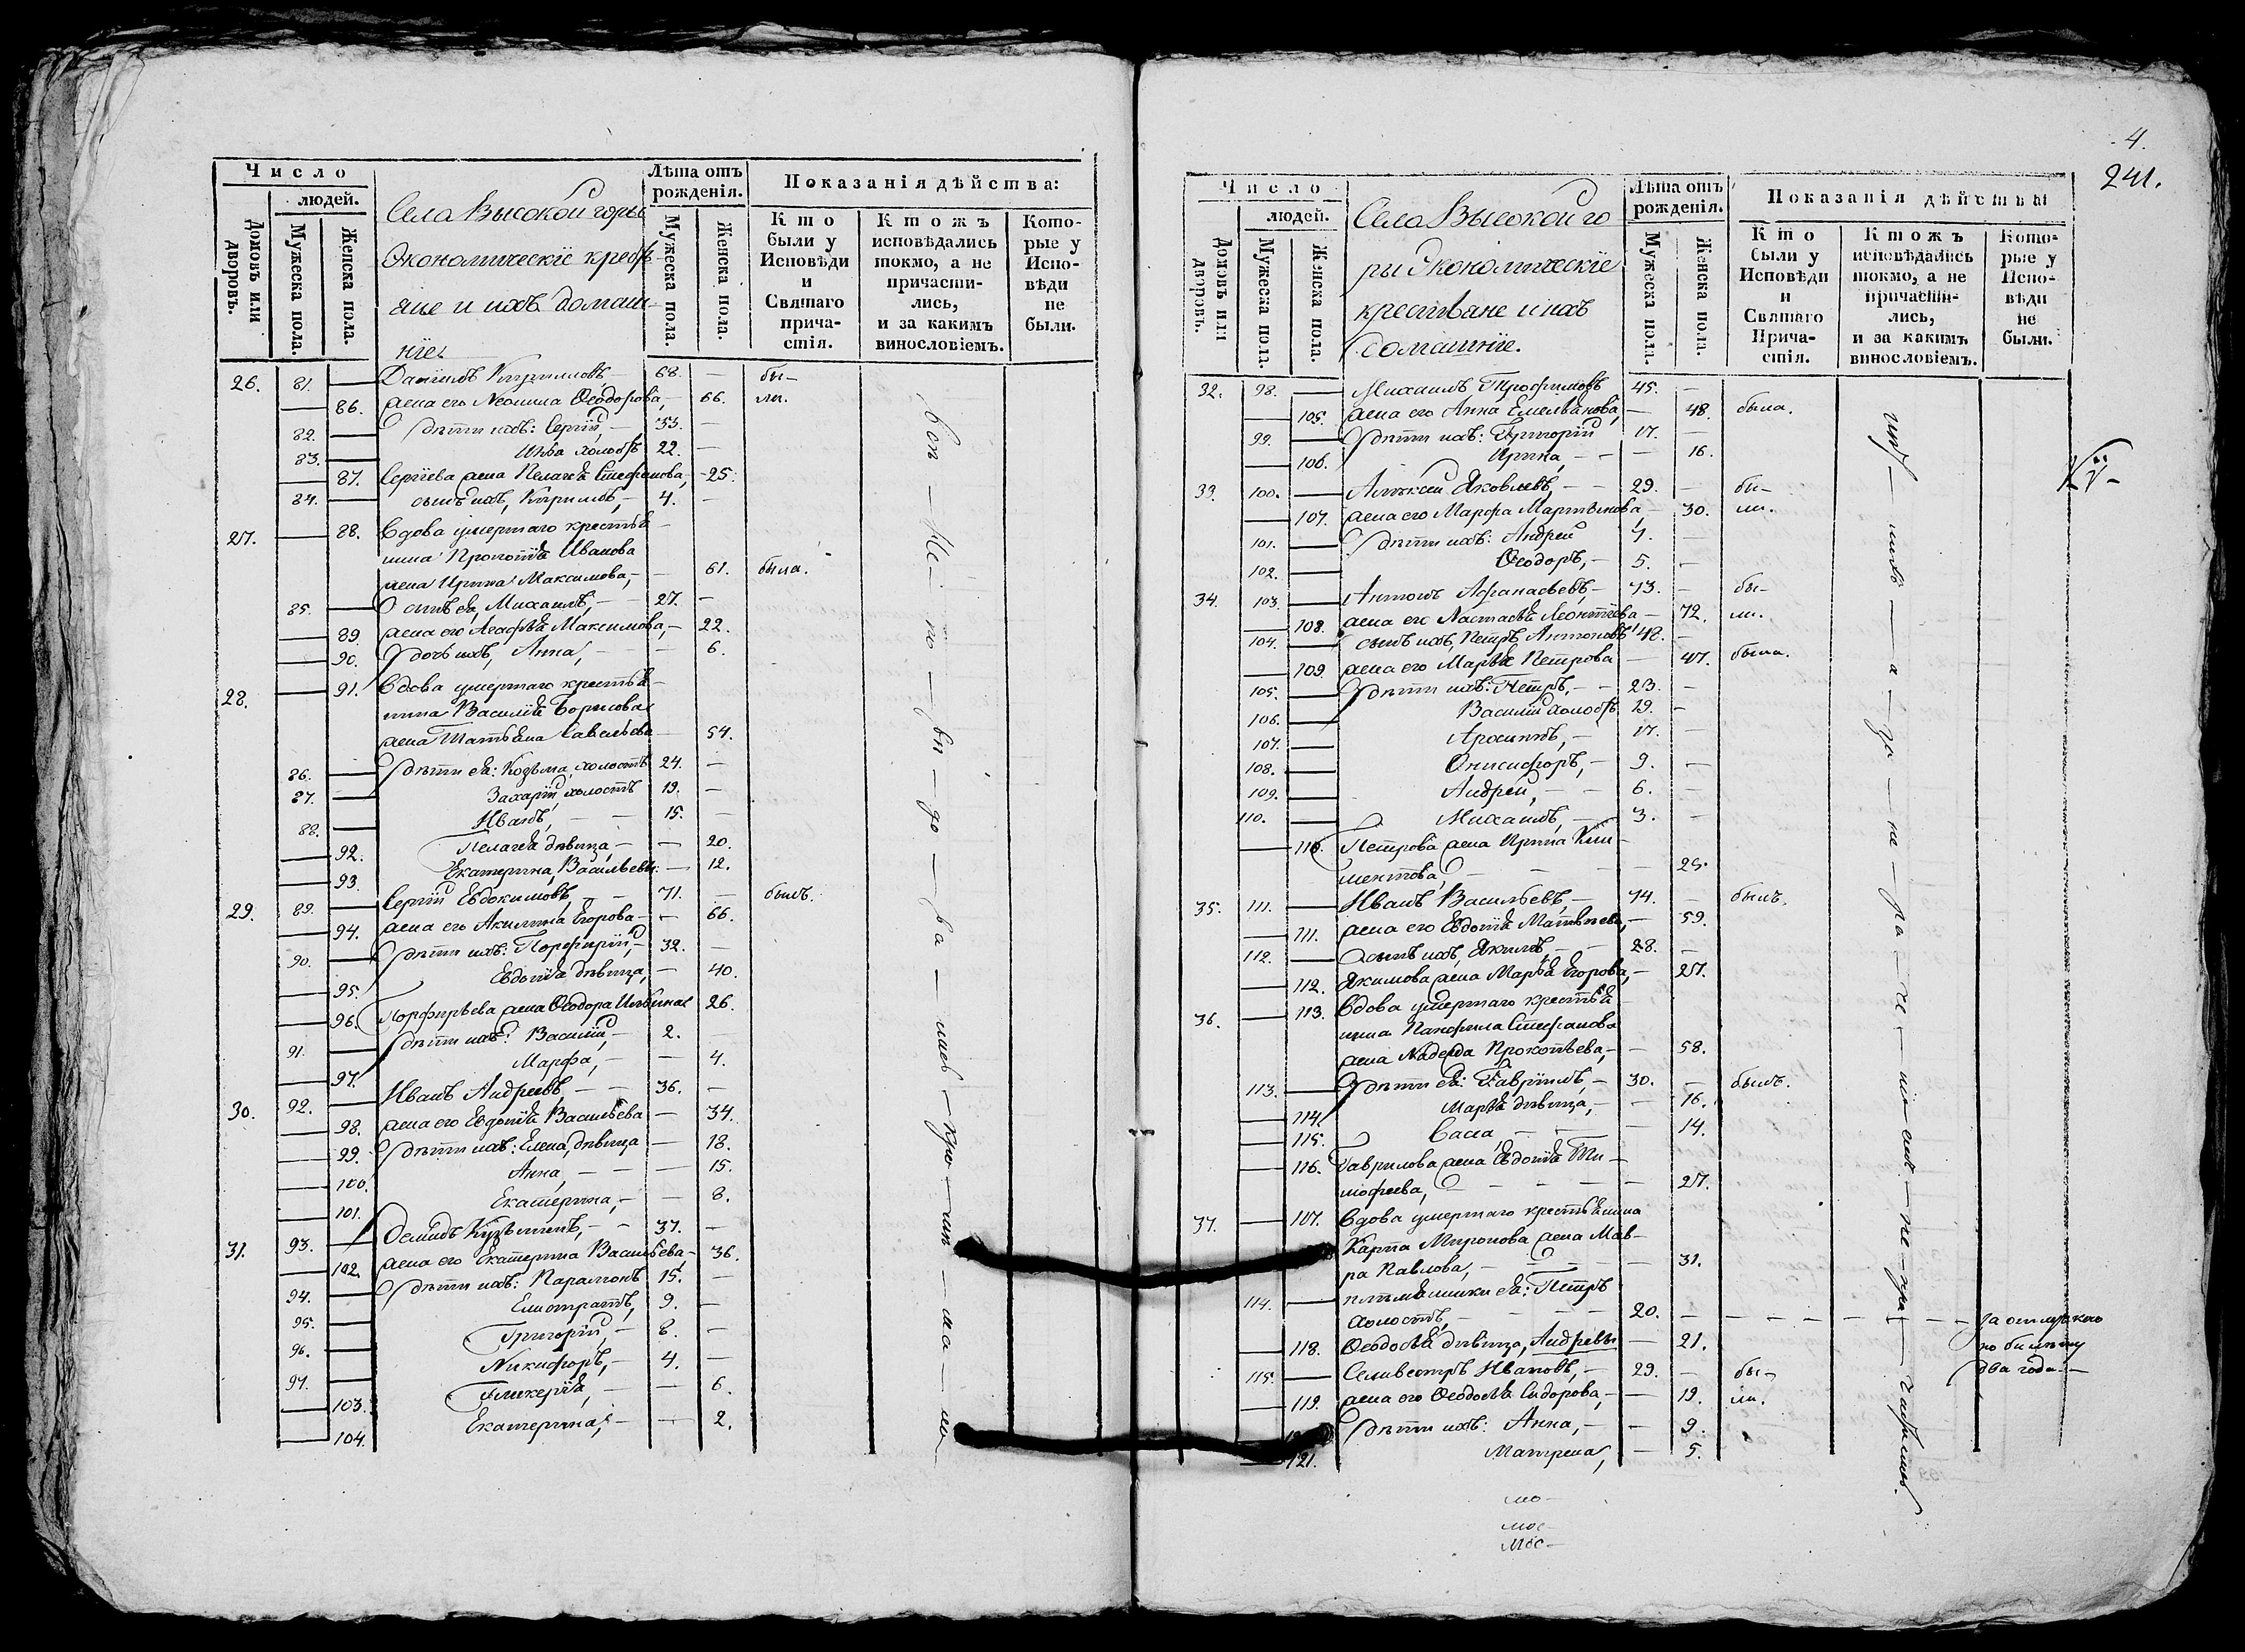 Число
людей.
Домовъ или дворовъ.
Мужеска пола.
Женска пола.
Села Высокой горы
Экономическіе кресть-
яне и ихъ домаш-
ніе
Лѣта отъ рожденія.
Мужеска пола.
Женска пола.
Показанія дѣйства:
Кто были у Исповѣди и Святаго причастія.
Ктожъ исповѣдались токмо, а не причастились, и за какимъ винословіемъ.
Которые у Исповѣди не были.
26. 81. — Даніилъ Кирилловъ — 68. — бы-
— 86. жена его Неонила Ѳеодорова, — 66. ли.
82. — дѣти ихъ: Сергій, — 33. —
83. — Илья холостъ 22. —
— 87. Сергіева жена Пелагея Стефанова, — 25.
84. — сынъ ихъ, Кириллъ, — 4. —
27. — 88. Вдова умершаго крестья-
нина Прокопія Иванова
жена Ирина Максимова, — 61. была.
85. — сынъ ея, Михаилъ, — 27. —
— 89. жена его Агафья Максимова, — 22.
— 90. дочь ихъ, Анна, — — 6.
28. — 91. Вдова умершаго крестья-
нина Василія Борисова
жена Татьяна Савельева — 54.
86. — дѣти ея: Козьма холостъ 24. —
87. — Захарій холостъ 19. —
88. — Иванъ, — — 15. —
— 92. Пелагея дѣвица, — — 20.
— 93. Екатерина, Васильевы — 12.
29. 89. — Сергій Евдокимовъ, — 71. — былъ.
— 94. жена его Акилина Егорова — — 66.
90. — дѣти ихъ: Порфирій, — 32. —
— 95. Евдокія дѣвица, — 40.
— 96. Порфирьева жена Ѳеодора Ильина 26.
91. — дѣти ихъ: Василій, — 2. —
— 97. Марфа, — — 4.
30. 92. — Иванъ Андреевъ, — — 36. —
— 98. жена его Евдокія Васильева — 34.
— 99. дѣти ихъ: Елена, дѣвица — 18.
— 100. Анна, — — — 15.
— 101. Екатерина, — — 8.
31. 93. — Демидъ Кузьминъ, — — 37. —
— 102. жена его Екатерина Васильева, — 36.
94. — дѣти ихъ: Парамонъ 15. —
95. — Елистратъ, 9. —
96. — Григорій, — 8. —
97. — Никифоръ, — 4. —
— 103. Гликерія, — — 6.
— 104. Екатерина, — — 2.
4.
241.
Число
людей.
Домовъ или дворовъ.
Мужеска пола.
Женска пола.
Села Высокой го
ры Экономическіе
крестьяне и ихъ
домашніе.
Лѣта отъ рожденія.
Мужеска пола.
Женска пола.
Показанія дѣйства
Кто были у Исповѣди и Святаго Причастія.
Ктожъ исповѣдались токмо, а не причастились, и за какимъ винословіемъ.
Которые у Исповѣди не были.
32. 98. — Михаилъ Трофимовъ 45. —
— 105. жена его Анна Емельянова, — 48. была.
99. — дѣти ихъ: Григорій 17. —
— 106. Ирина, — — — 16.
33. 100. — Алексѣй Яковлевъ, — — 29. — бы-
— 107. жена его Марфа Мартынова, — 30. ли.
101. — дѣти ихъ: Андрей 7. —
102. — Ѳеодоръ, — 5. —
34. 103. — Антонъ Афанасьевъ, — 73. — бы-
— 108. жена его Настасья Леонтіева — 72. ли.
104. — сынъ ихъ, Петръ Антоновъ 48. —
— 109. жена его Марья Петрова — 47. была.
105. — дѣти ихъ: Петръ, — — 23. —
106. — Василій холостъ 19. —
107. — 17. —
108. — Онисифоръ, — 9. —
109. — Андрей, — — 6. —
110. — Михаилъ, — — 3. —
— 110. Петрова жена Ирина Кли-
ментова, — — — 25.
35. 111. — Иванъ Васильевъ, — 74. — былъ.
— 111. жена его Евдокія Матвѣева, — 59.
112. — сынъ ихъ, Якимъ, — — 28. —
— 112. Якимова жена Марфа Егорова, — 27.
36. — 113. Вдова умершаго крестья-
нина Панфила Стефанова
жена Надежда Прокопьева, — — 58.
113. — дѣти ея: Гавріилъ, — 30. — былъ.
— 114. Марья дѣвица, — — 16.
— 115. Васса, — — — 14.
— 116. Гаврилова жена, Евдокія Ти-
мофеева, — — — — 27.
37. — 107. Вдова умершаго крестьянина
Карпа Миронова жена Мав-
ра Павлова, — — — — 31.
114. — племянники ея: Петръ
холостъ, — — — — 20. — — — — — — — за отлучкою
— 118. Ѳеодосья дѣвица, Андреевы — 21. по билету
два года. —
115. — Селиверстъ Ивановъ, — 29. — бы-
— 119. жена его Ѳеодосья Сидорова, — — 19. ли.
дѣти ихъ: Анна, — — 9.
— 121. Матрена, — 5.
мо-
мос-
мос-